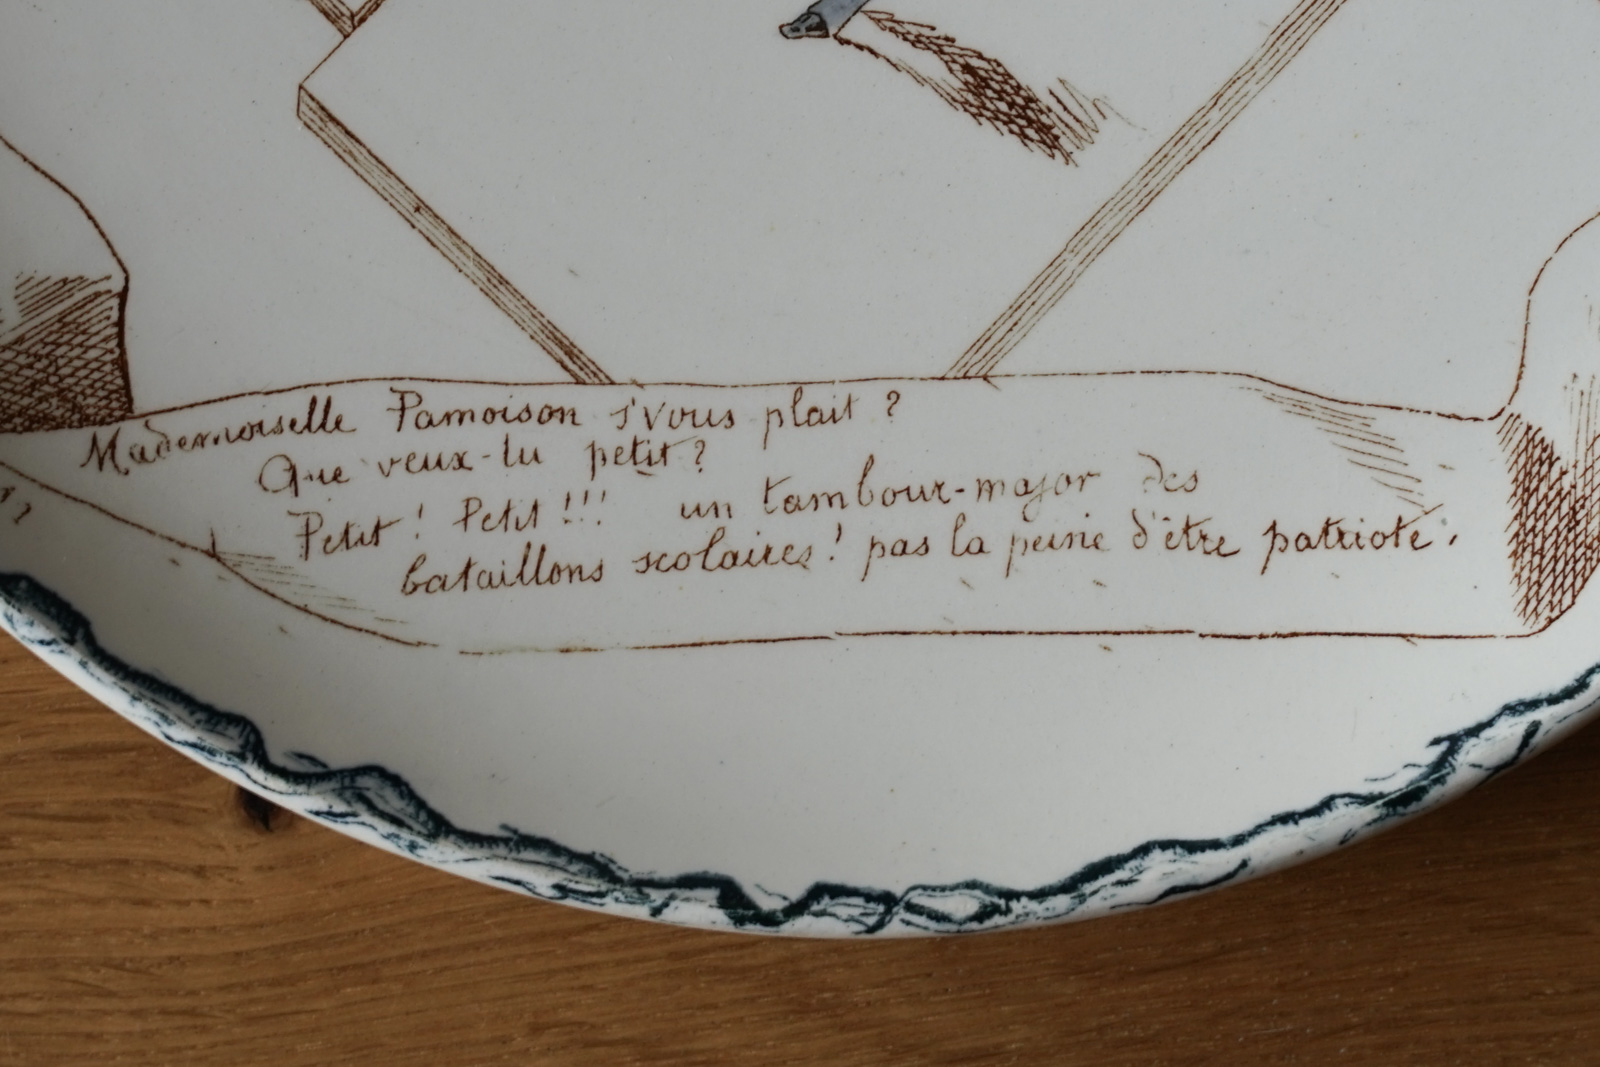 Mademoiselle Pamoison s'vous plait ?
Que veux-tu petit ?
Petit ! Petit !!! un tambour-major des
bataillons scolaires ! pas la peine d'être patriote.